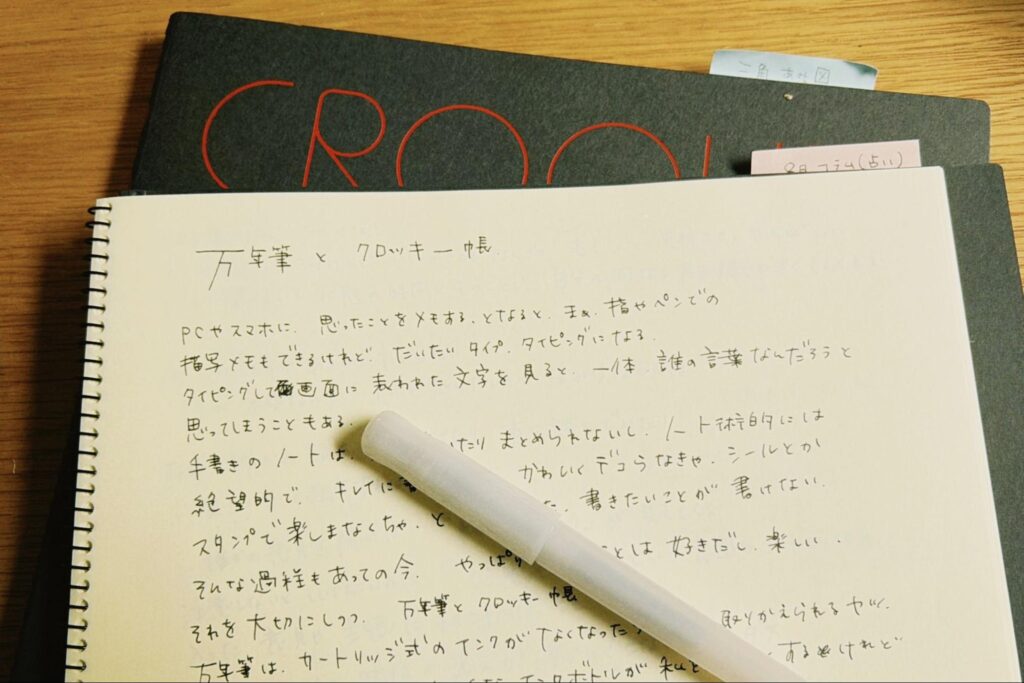 三角 あみ図
CROQU
9日 コラム(占い)
万年筆 と クロッキー帳
PCやスマホに、思ったことをメモする、となると、まぁ、指やペンでの
描写メモもできるけれど、だいたい タイプ、タイピングになる。
タイピングして画面に 表われた 文字を 見ると、一体、誰の 言葉 なんだろうと
思ってしまうこともある。
手書きの ノートは、 いたり まとめられないし、ノート術的には
絶望的で、キレイに かわいく デコらなきゃ、シールとか
スタンプで 楽しまなくちゃ、と 書きたいことが 書けない。
そんな過程もあっての今、 やっぱり ことは 好きだし、楽しい、
それを 大切にしつつ、 万年筆と クロッキー帳
万年筆は、カートリッジ式の インクが なくなったら 取りかえられるヤツ。
インクボトルが 私と するけれど